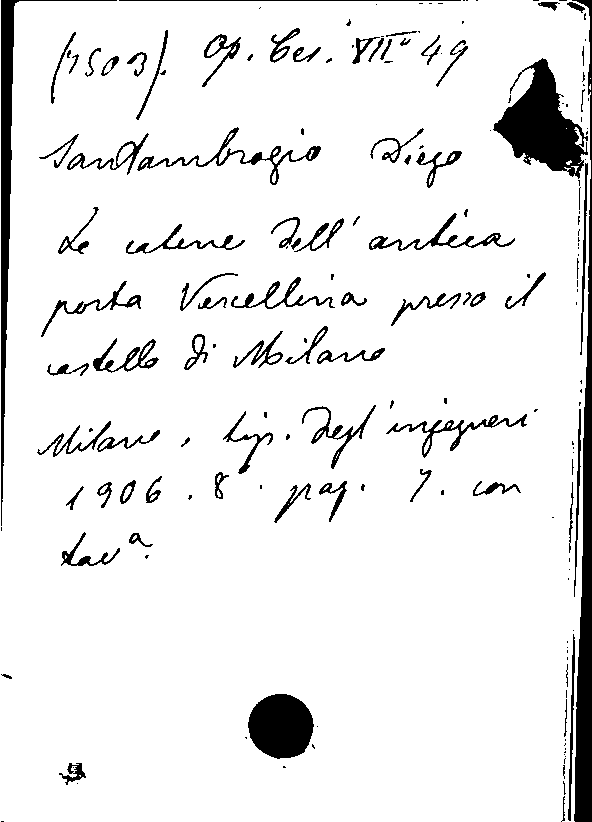 (7503). Op. Ces. VIIº 49
Santambrogio Diego
Le catene dell'antica
porta Vercellina presso il
castello di Milano
Milano, tip. degl'ingegneri
1906. 8º. pag. 7. con
tavª.